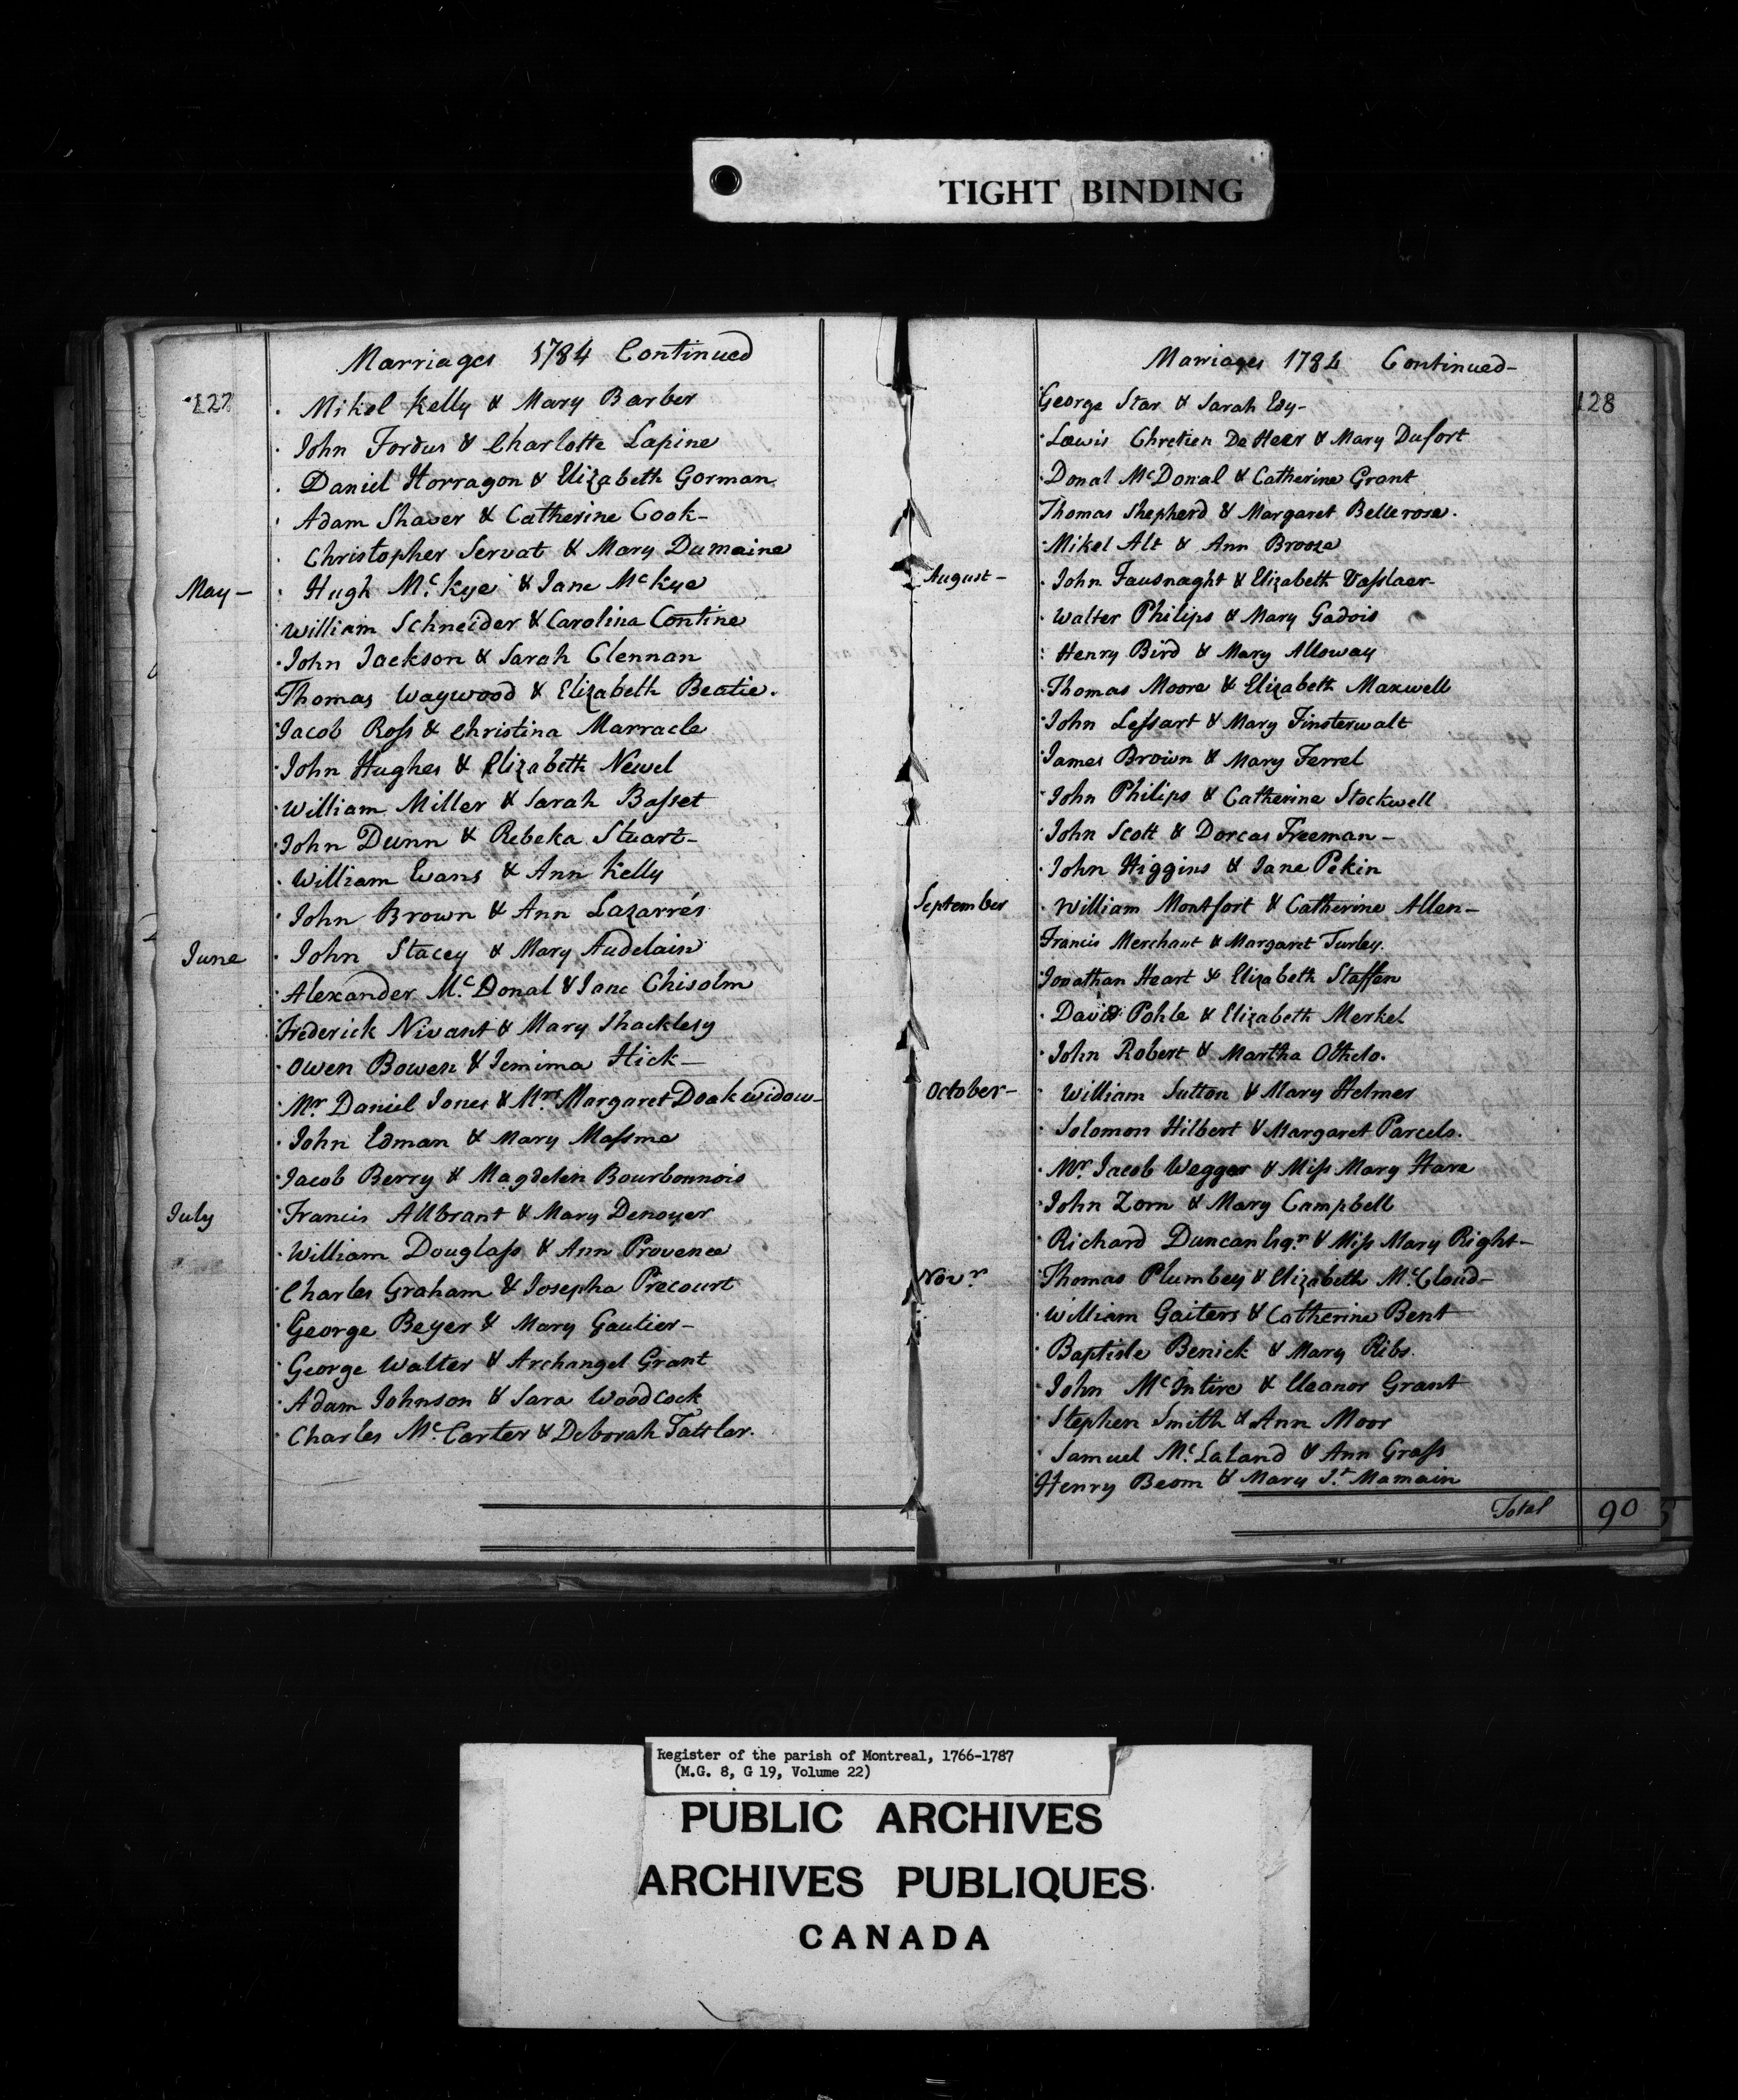 TIGHT BINDING
Marriages 1784 Continued
127
Mikel Kelly & Mary Barber
John Fordus & Charlotte Lapine
Daniel Horragon & Elizabeth Gorman
Adam Shaver & Catherine Cook-
Christopher Servat & Mary Dumaine
May- Hugh Mc. Kye & Jane Mc Kye
William Schneider & Carolina Contine
John Jackson & Sarah Clennan
Thomas Waywood & Elizabeth Beatie.
Jacob Ross & Christina Marracle
John Hughes & Elizabeth Newel
William Miller & Sarah Basset
John Dunn & Rebeka Stuart-
William Evans & Ann Kelly
John Brown & Ann Lazarrés
June John Stacey & Mary Audelain
Alexander Mc. Donal & Jane Chisolm
Frederick Nivant & Mary Shacklesy
Owen Bowen & Jemima Hick-
Mr Daniel Jones & Mrs Margaret Doak widow-
John Edman & Mary Massme
Jacob Berry & Magdelen Bourbonnois
July Francis Allbrant & Mary Denoyer
William Douglass & Ann Provence
Charles Graham & Josepha Precourt
George Beyer & Mary Gautier-
George Walter & Archangel Grant
Adam Johnson & Sara Woodcock
Charles Mc. Carter & Deborah Tattler.
Marriages 1784 Continued-
128
George Star & Sarah Edy-
Lewis Chretien De Heer & Mary Dufort
Donal McDonal & Catherine Grant
Thomas Shepherd & Margaret Bellerose.
Mikel Alt & Ann Brooze
August- John Fausnaght & Elizabeth Vasslaer-
Walter Philips & Mary Gadois
Henry Bird & Mary Alloway
Thomas Moore & Elizabeth Maxwell
John Lessart & Mary Finsterwalt
James Brown & Mary Ferrel
John Philips & Catherine Stockwell
John Scott & Dorcas Freeman-
John Higgins & Jane Pekin
September William Montfort & Catherine Allen-
Francis Merchant & Margaret Turley.
Jonathan Heart & Elizabeth Staffen
David Pohle & Elizabeth Merkel
John Robert & Martha Othelo.
October- William Sutton & Mary Helmer
Solomon Hilbert & Margaret Parcels.
Mr. Jacob Wegger & Miss Mary Hare
John Zorn & Mary Campbell
Richard Duncan Esqr. & Miss Mary Right-
Novr. Thomas Plumbey & Elizabeth Mc.Cloud-
William Gaiters & Catherine Bent
Baptiste Benick & Mary Ribs.
John McIntire & Eleanor Grant
Stephen Smith & Ann Moor
Samuel Mc. Laland & Ann Grass
Henry Beom & Mary St. Mamain
Total 90
Register of the parish of Montreal, 1766-1787
(M.G. 8, G 19, Volume 22)
PUBLIC ARCHIVES
ARCHIVES PUBLIQUES
CANADA